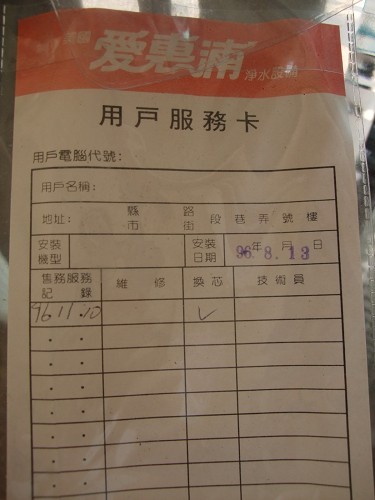 美國 愛惠浦 淨水設備
用戶服務卡
用戶電腦代號：
用戶名稱：
地址： 縣市 路街 段 巷 弄 號 樓
安裝機型 安裝日期 年 月 日 96.8.13
售務服務記錄 維修 換芯 技術員
96.11.10 ✓